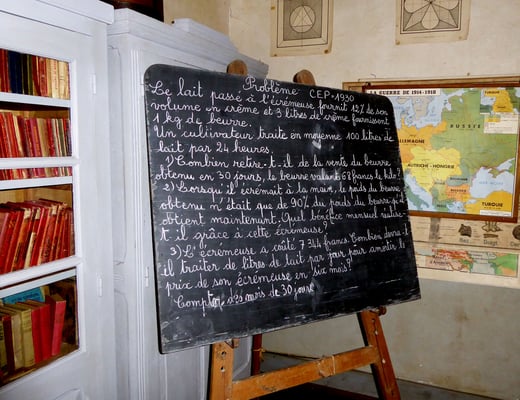 Problème CEP-1930
Le lait passé à l'écrémeuse fournit 12% de son
volume en crème et 3 litres de crème fournissent
1 kg de beurre.
Un cultivateur traite en moyenne 100 litres de
lait par 24 heures.
1) Combien retire-t-il de la vente du beurre
obtenu en 30 jours, le beurre valant 68 francs le kilo?
2) Lorsqu'il écrémait à la main, le poids du beurre
obtenu n'était que de 90% du poids du beurre qu'il
obtient maintenant. Quel bénéfice mensuel réalise-
t-il grâce à cette écrémeuse?
3) L'écrémeuse a coûté 7344 francs. Combien devra-t-
il traiter de litres de lait par jour pour amortir le
prix de son écrémeuse en six mois?
Compter des mois de 30 jours
LA GUERRE DE 1914-1918
RUSSIE
ALLEMAGNE
AUTRICHE-HONGRIE
TURQUIE